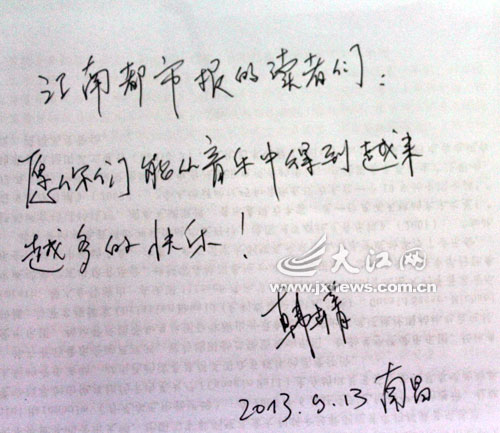 江南都市报的读者们：
愿你们能从音乐中得到越来
越多的快乐！
大江网
www.jxnews.com.cn
2013.9.13 南昌